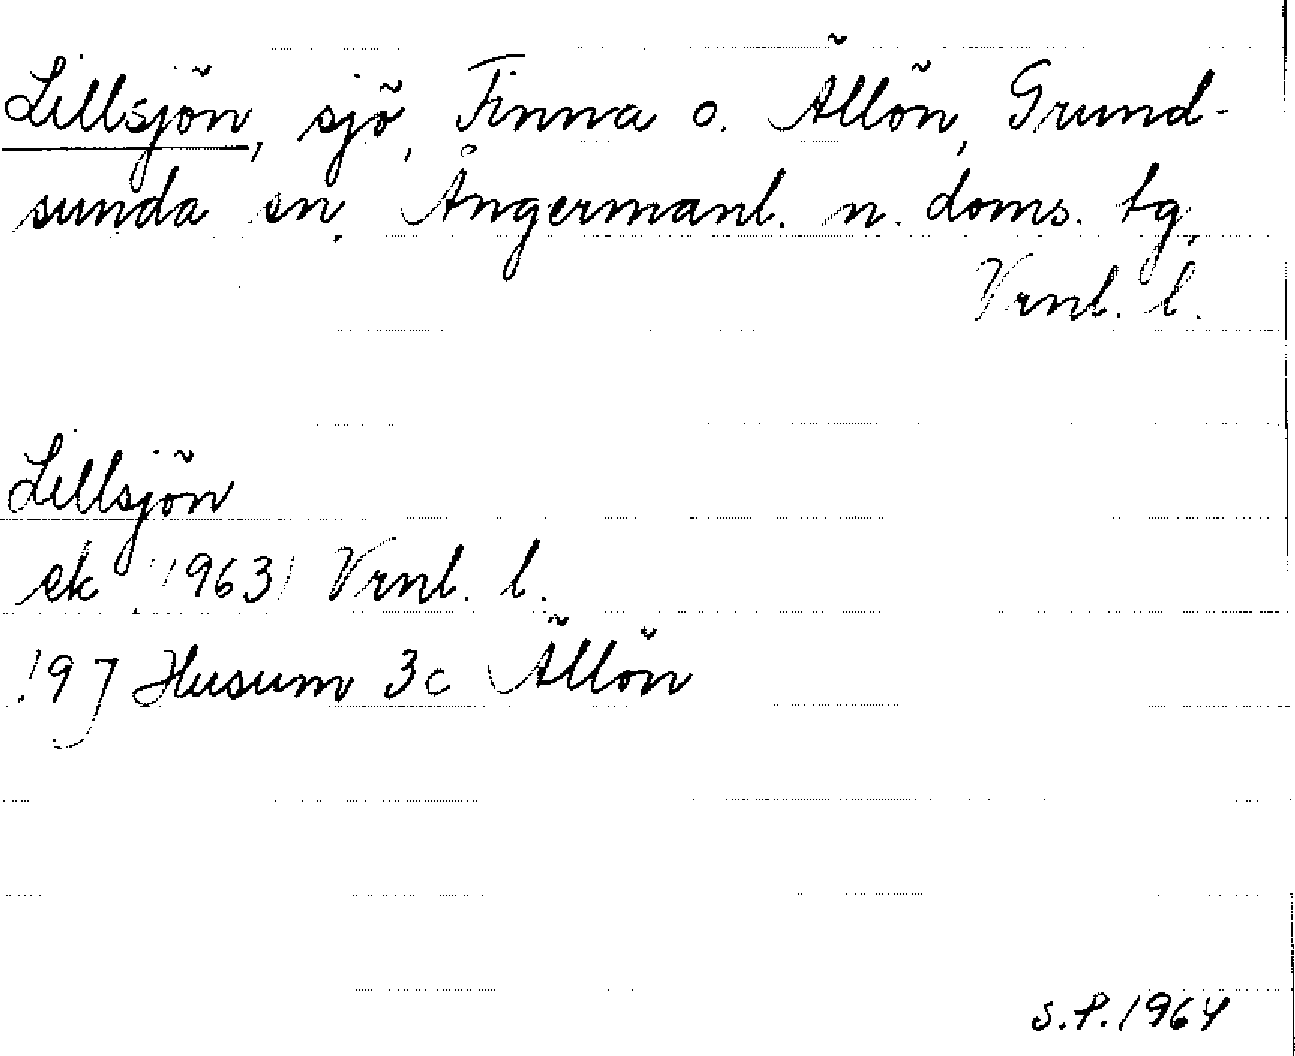 Lillsjön, sjö, Finna o. Ällön, Grund-
sunda sn, Ångermanl. n. doms. tg,
Vrnl. l.
Lillsjön
ek (1963) Vrnl. l.
19 J Husum 3c Ällön
S.P. 1964